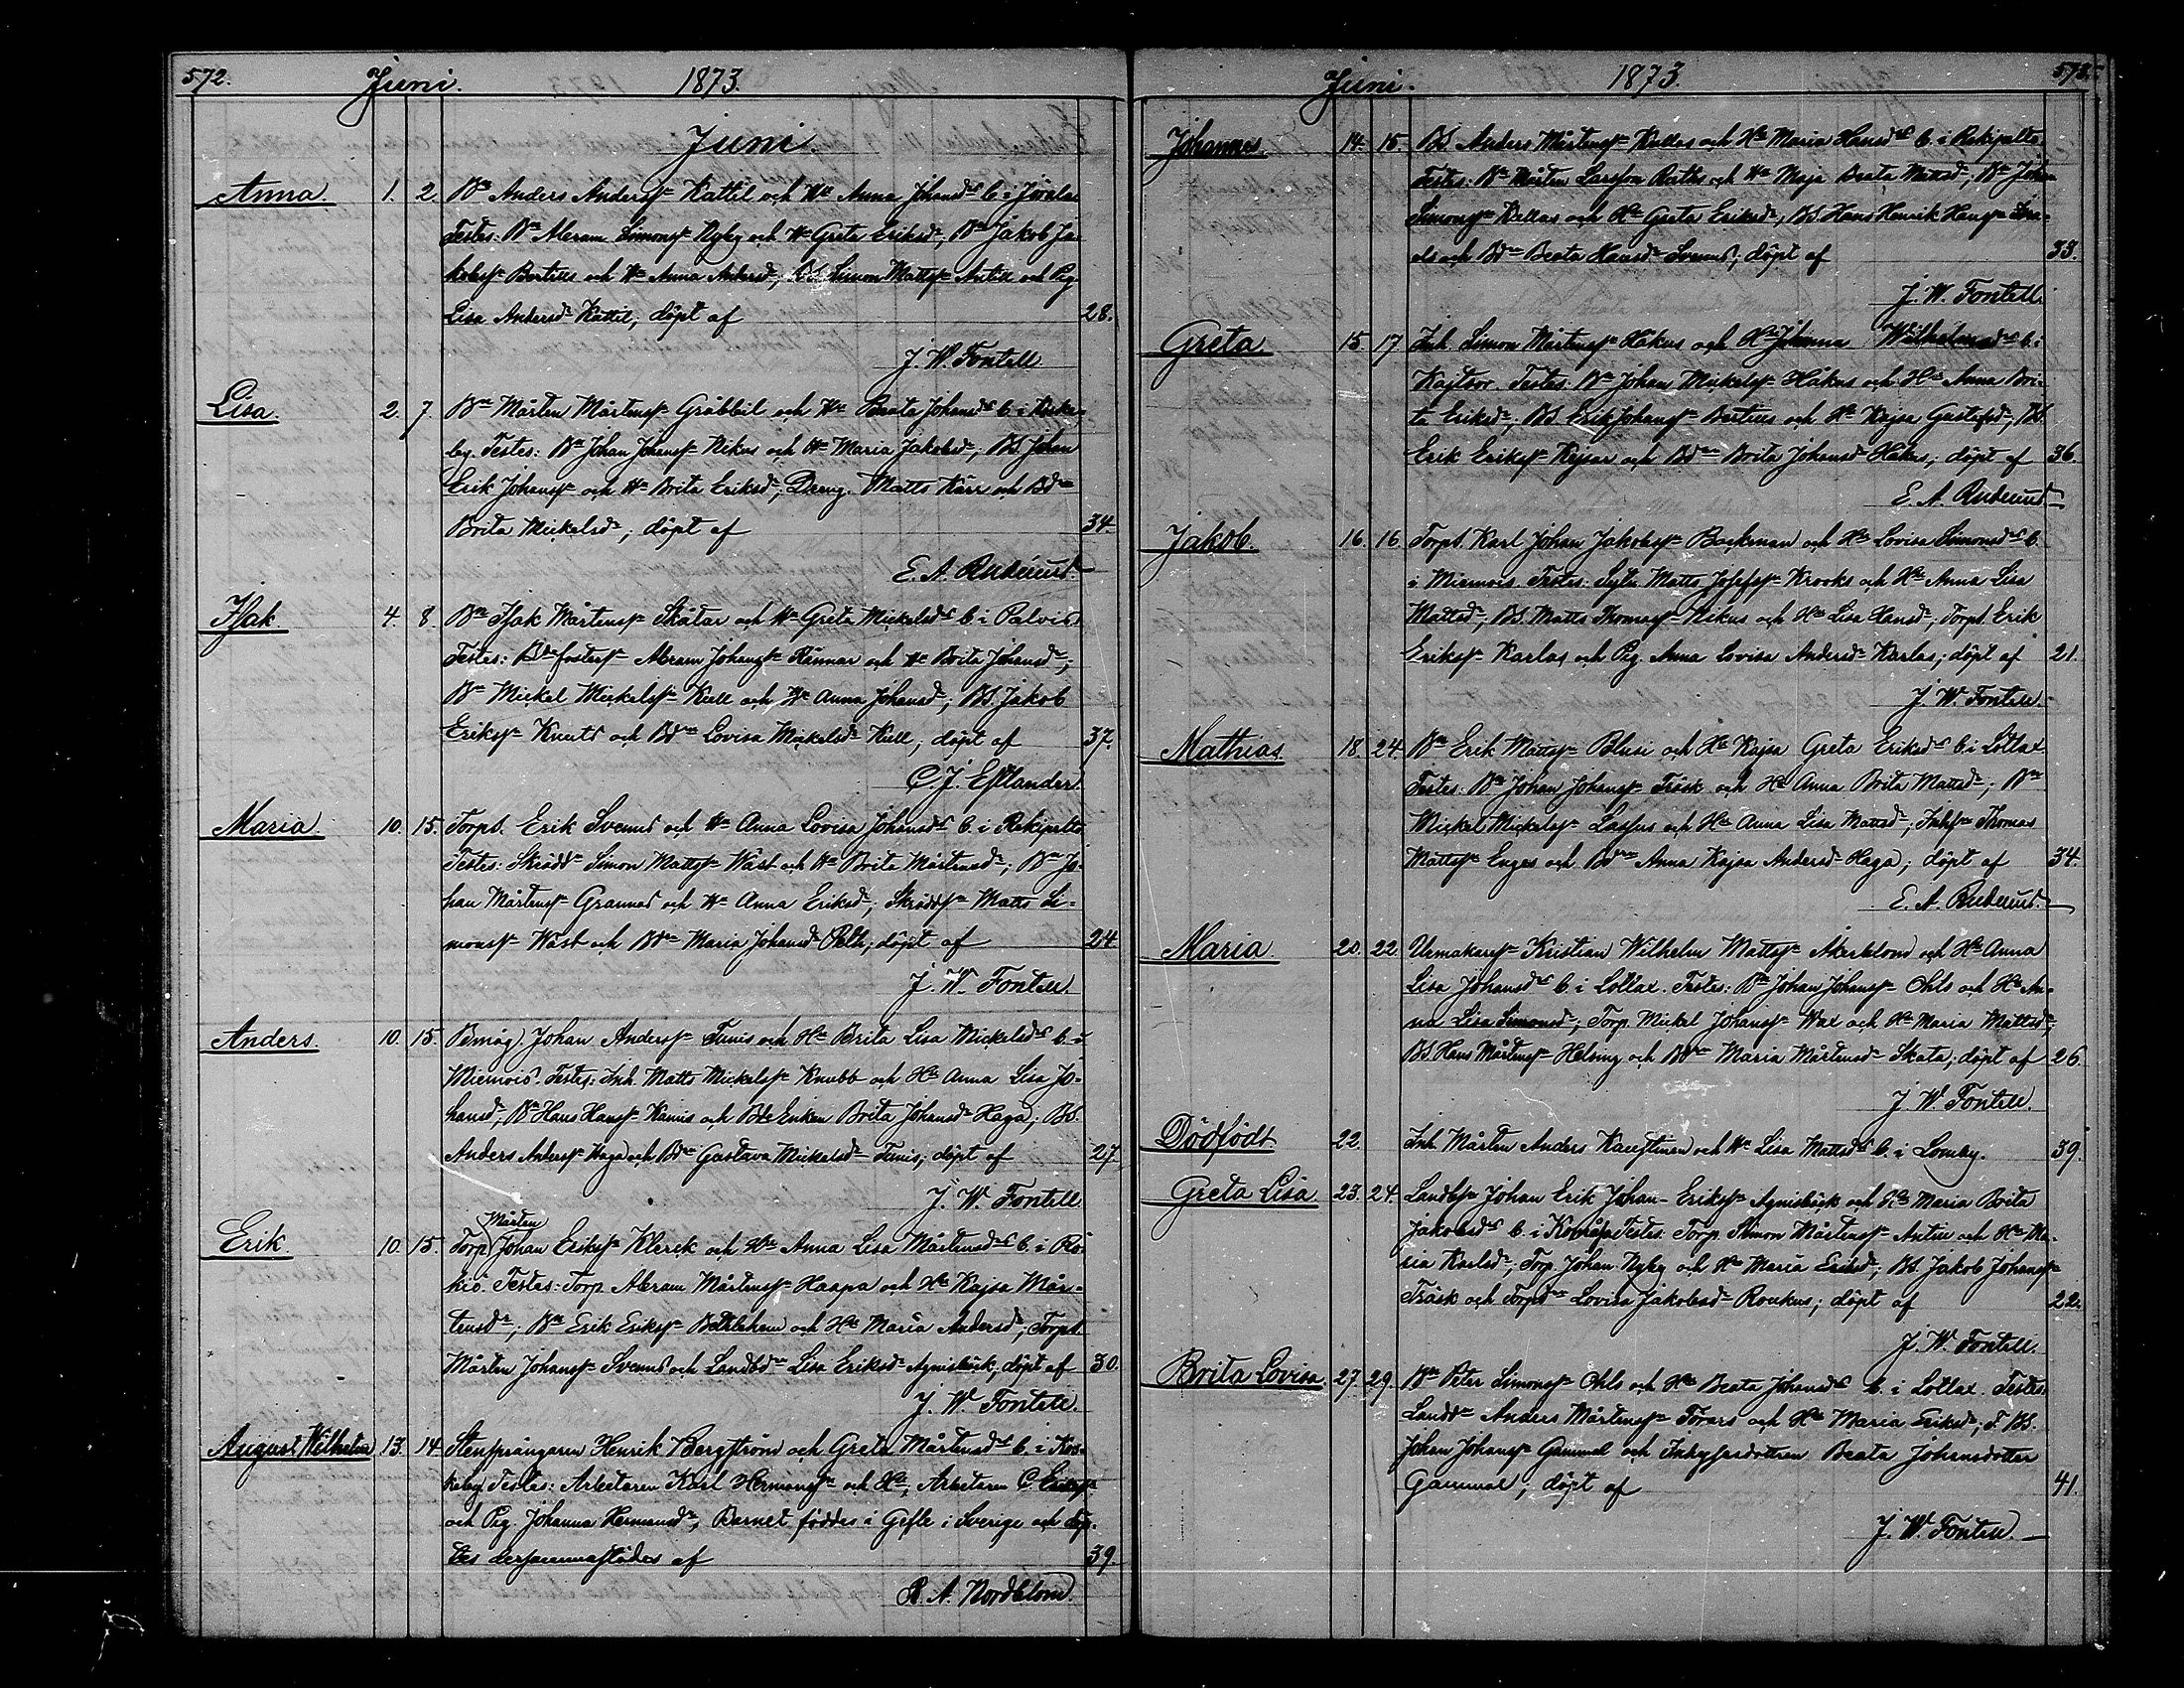 572. Juni. 1873.
Juni.
Anna. 1. 2. Bn Anders Andersn Kattil och Hu Anna Johansdr b. i Jivala
Testes: Bn Abram Simonsn Nyby och Hu Greta Eriksdr, Bn Jakob Ja-
kobsn Bertills och Hu Anna Andersdr, BS. Simon Mattsn Antill och Pig.
Lisa Andersdr Kattil, döpt af 28.
J. W. Fontell
Lisa. 2. 7. Bn Mårten Mårtensn Gråbbil och Hu Beata Johansdr b. i Koske-
by. Testes: Bn Johan Johansn Nikus och Hu Maria Jakobsdr; BS. Johan
Erik Johansn och Hu Brita Eriksdr, Dreng. Matts Kärr och Bdr
Brita Mickelsdr; döpt af 34.
E. A.
Isak. 4. 8. Bn Isak Mårtensn Skåtar och Hu Greta Mickelsdr b. i Palvis
Testes: Bdefostersn Abram Johansn Rännar och Hu Brita Johansdr;
Bn Mickel Mickelsn Kull och Hu Anna Johansdr, BS. Jakob
Eriksn Knuts och Bdr Lovisa Mickelsdr Kull, döpt af 37.
C. J. Estlander.
Maria 10. 15. Torps. Erik Svenns och Hu Anna Lovisa Johansdr b. i Rekipelto
Testes: Skrädd. Simon Mattsn Wäst och Hu Brita Mårtensdr; Bn Jo-
han Mårtensn Grannas och Hu Anna Eriksdr; Skräddsn Matts Si-
monsn Wäst och Bdr Maria Johansdr Pelk; döpt af 24
J. W. Fontell.
Anders. 10. 15. Bmåg. Johan Andersn Tunis och Hu Brita Lisa Mickelsdr b. i
Miemois. Testes: Inh. Matts Mickelsn Knubb och Hu Anna Lisa Jo-
hansdr, Bn Hans Hansn Kamis och Bde Enkan Brita Johansdr Haga; BS.
Anders Andersn Haga och Bdr Gustava Mickelsdr Tunis; döpt af 27
J. W. Fontell
Erik. 10. 15. Torp. Mårten Johan Eriksn Klerck och Hu Anna Lisa Mårtensdr b. i Rö-
kiö. Testes: Torp. Abram Mårtensn Haapa och Hu Kajsa Mår-
tensdr; Bn Erik Eriksn Bethlehem och Hu Maria Andersdr, Torps.
Mårten Johansn Svenns och Landbdr Lisa Eriksdr Agnisbäck, döpt af 30.
J. W. Fontell.
August Wilhelm 13. 14. Stensprängaren Henrik Bergström och Greta Mårtensdr b. i Kos-
keby. Testes: Arbetaren Karl Hermansn och Hu, Arbetaren C. Eriksn
och Pig. Johanna Hermansdr, Barnet föddes i Gefle i Sverige och döp-
tes dersammastädes af 39.
A. Nordblom.
573. Juni. 1873.
Johannes. 14. 15. BS. Anders Mårtensn Kullas och Hu Maria Hansdr b. i Rekipelto
Testes: Bn Mårten Larsson Raths och Hu Maja Beata Mattsdr, Bn Johan
Simonsn Kullas och Hu Greta Eriksdr, BS. Hans Henrik Hansn Isra-
els och Bdr Beata Hansdr Svenns; döpt af 33.
J. W. Fontell.
Greta 15 17 Inh. Simon Mårtensn Håkus och Hu Johanna Wilhelmsdr b. i
Kaitsor. Testes: Bn Johan Mickelsn Håkus och Hu Anna Bri-
ta Eriksdr; BS. Erik Johansn Bertills och Hu Kajsa Gustafsdr, BS.
Erik Eriksn Kejsar och Bdr Brita Johansdr Håkus; döpt af 36.
E. A.
Jakob. 16. 16. Torps. Karl Johan Jakobsn Backman och Hu Lovisa Simonsdr b.
i Miemois. Testes: Sytn. Matts Josefsn Krooks och Hu Anna Lisa
Mattsdr, BS. Matts Thomasn Nikus och Hu Lisa Hansdr; Torps. Erik
Eriksn Karlas och Pig. Anna Lovisa Andersdr Karlas; döpt af 21.
J. W. Fontell.
Mathias 18. 24. Bn Erik Mattsn Blusi och Hu Kajsa Greta Eriksdr b. i Lottax
Testes: Bn Johan Johansn Träsk och Hu Anna Brita Mattsdr; Bn
Mickel Mickelsn Lassus och Hu Anna Lisa Mattsdr; Inhsn Thomas
Mattsn Enges och Bdr Anna Kajsa Andersdr Haga; döpt af 34.
E. A.
Maria 20. 22. Urmakaresn Kristian Wilhelm Mattsn Åkerblom och Hu Anna
Lisa Johansdr b. i Lottax. Testes: Bn Johan Johansn Ohls och Hu An-
na Lisa Simonsdr; Torp. Mickel Johansn Wax och Hu Maria Mattsdr;
BS. Hans Mårtensn Helsing och Bdr Maria Mårtensdr Skata; döpt af 26.
J. W. Fontell.
Dödfödt 22. Inh. Mårten Anders Kaustman och Hu Lisa Mattsdr b. i Lomby. 39.
Greta Lisa 23. 24. Landbsn Johan Erik Johan-Eriksn Agnisbäck och Hu Maria Brita
Jakobsdr b. i Komåsa Testes: Torp. Simon Mårtensn Antill och Hu Ma-
ria Karlsdr; Torp. Johan Nyby och Hu Maria Eriksdr; BS. Jakob Johansn
Träsk och Torpdr Lovisa Jakobsdr Roukus; döpt af 22.
J. W. Fontell.
Brita Lovisa. 27. 29. Bn Peter Simonsn Ohls och Hu Beata Johansdr b. i Lottax. Testes
Landb. Anders Mårtensn Torars och Hu Maria Eriksdr; F. BS.
Johan Johansn Gammal och Inhysesdottren Beata Johansdotter
Gammal; döpt af 41.
J. W. Fontell.